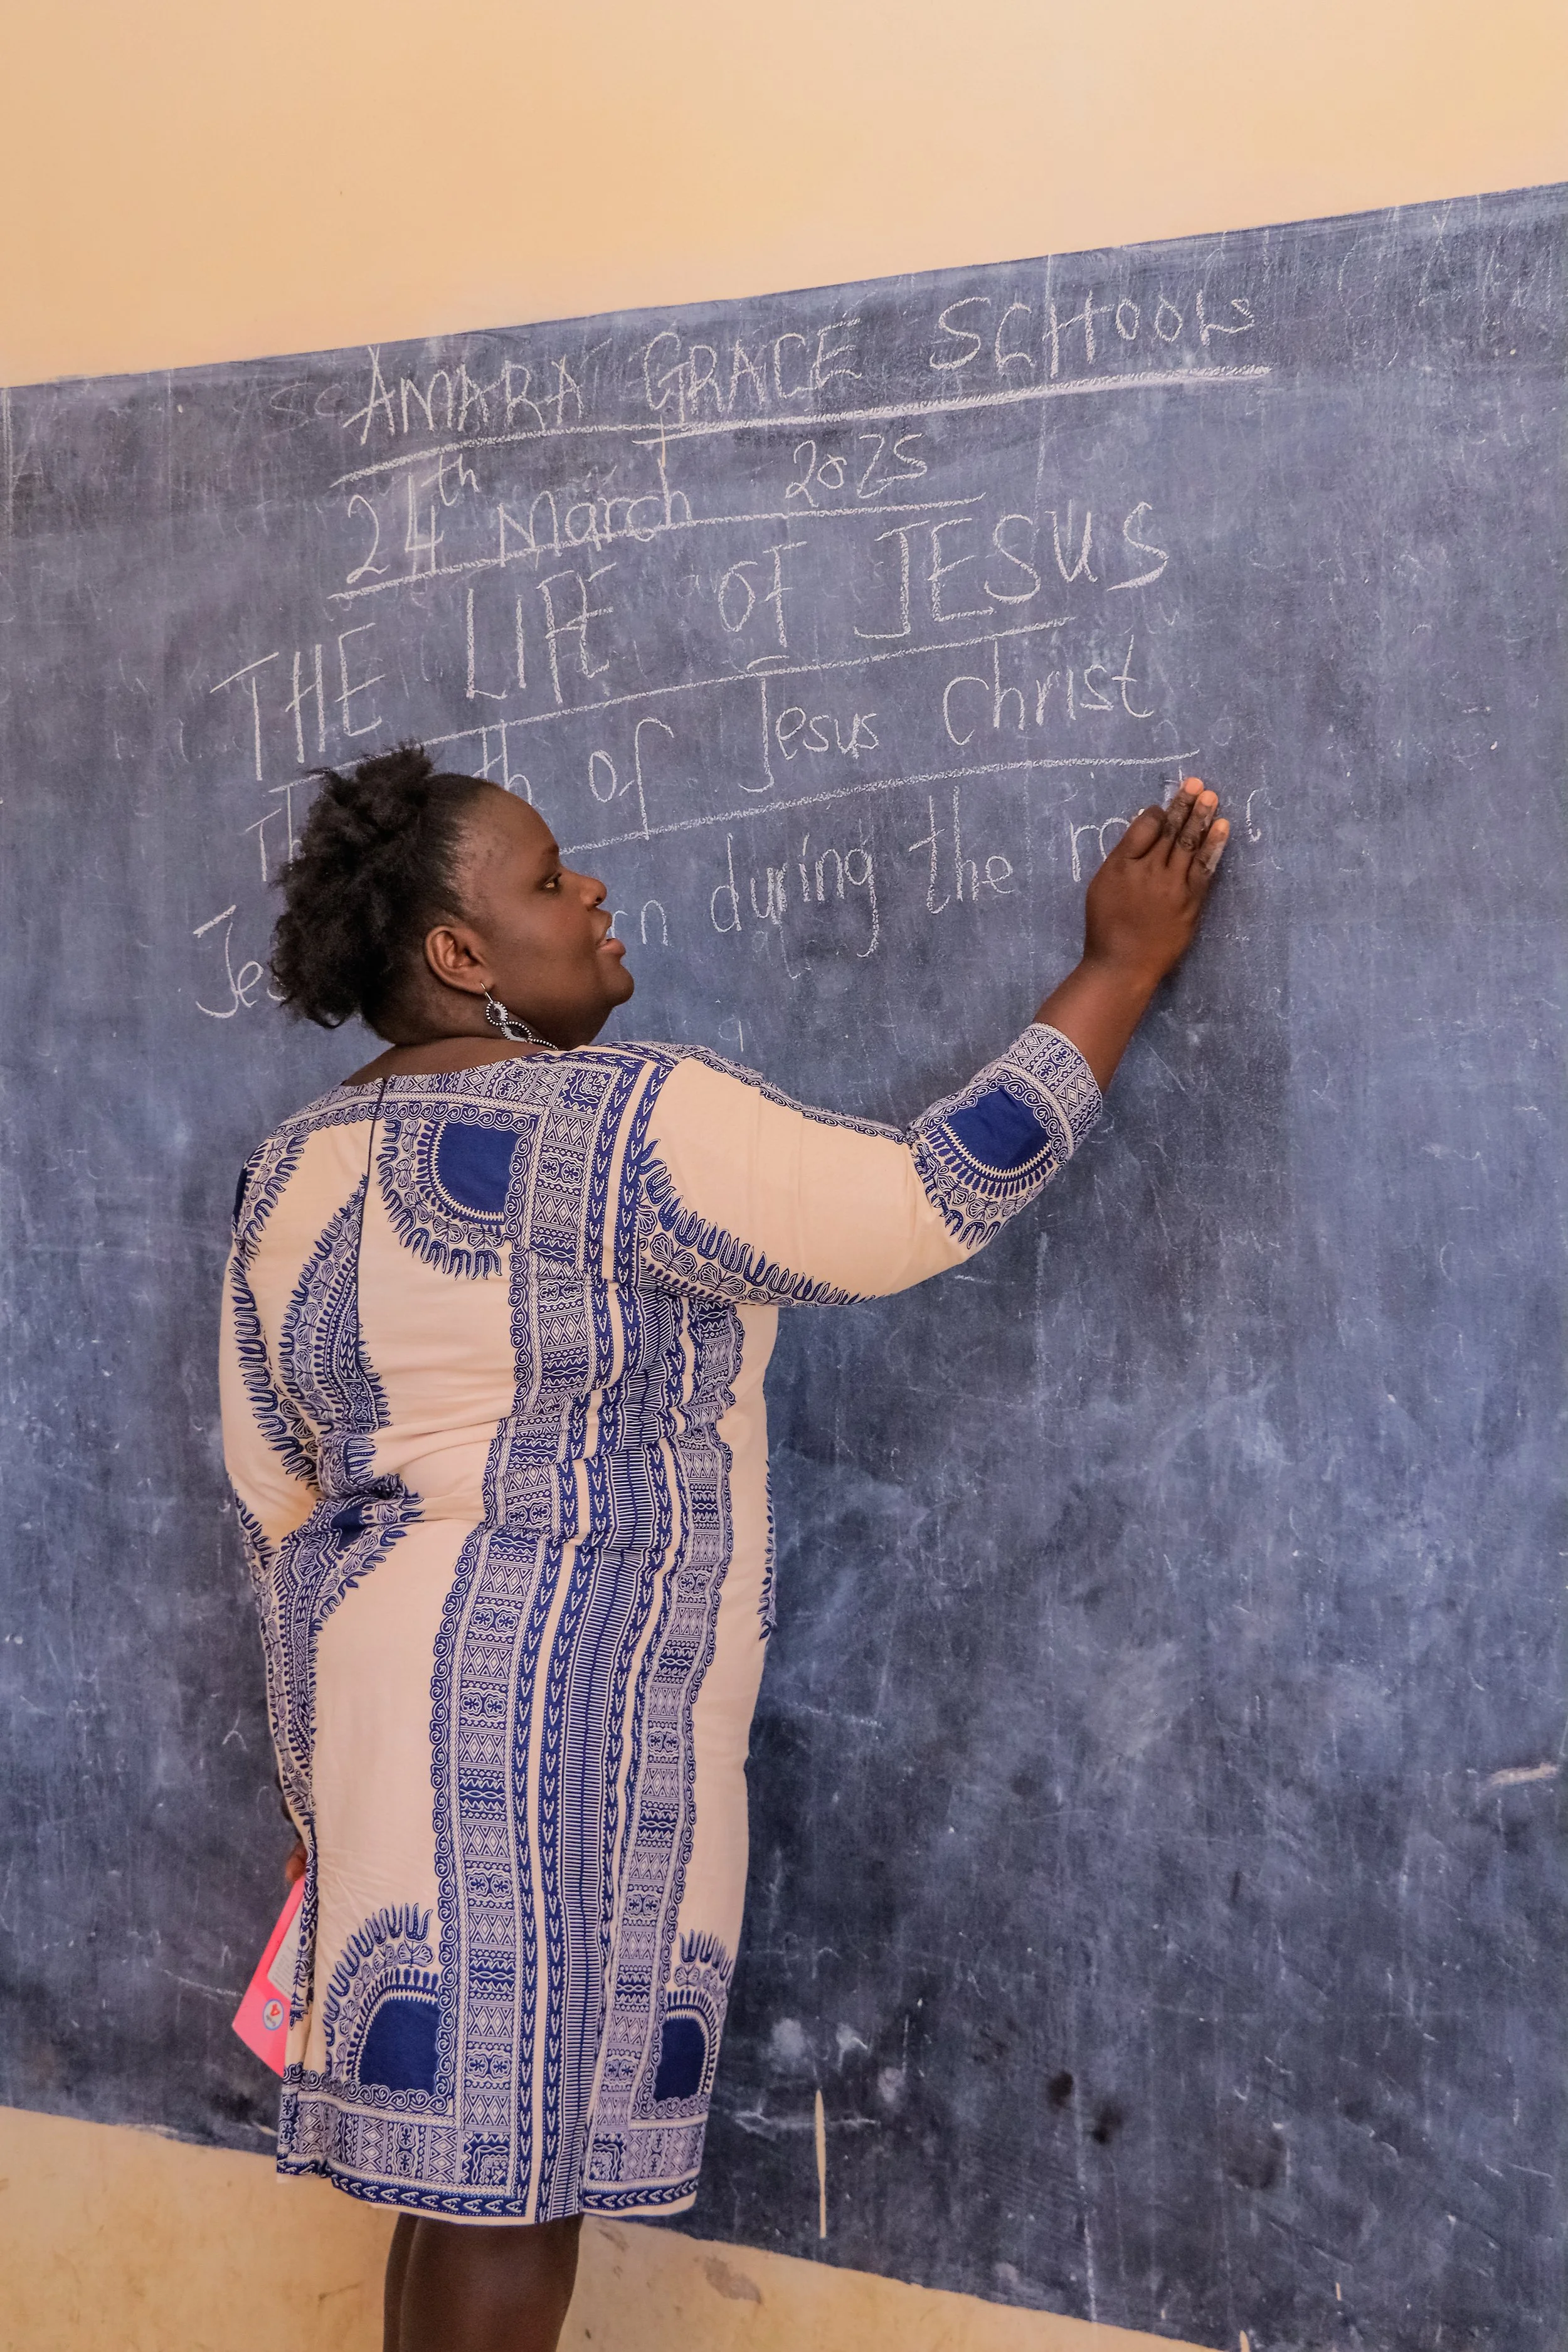 AMARA GRACE SCHOOLS
24th March 2025
THE LIFE OF JESUS
of Jesus Christ
during the